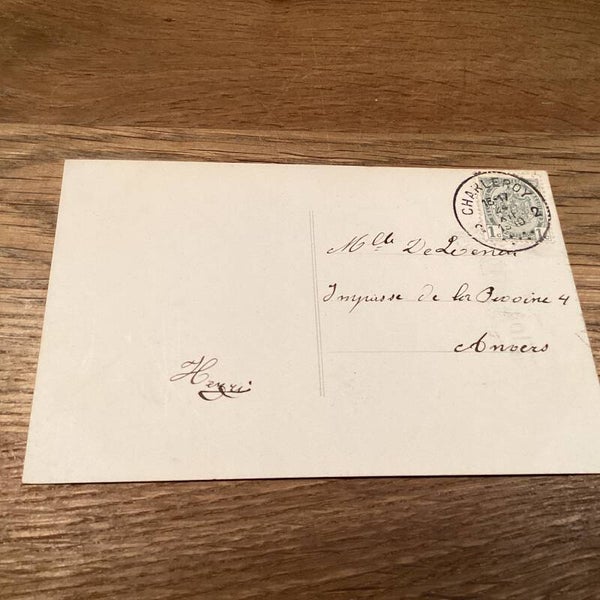 CHARLEROY 2
1 1
Mlle
Impasse de la Pivoine 4
Anvers
Henri